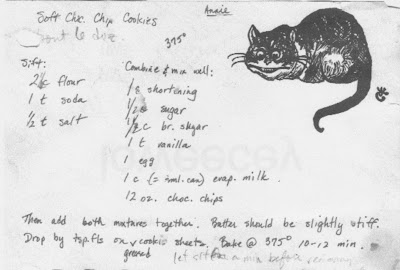 Annie
Soft Choc. Chip Cookies
375°
Sift:
flour
1 t soda
1/2 t salt
Combine & mix well:
shortening
sugar
br. sugar
1 t vanilla
1 egg
1 c (= sml. can) evap. milk.
12 oz. choc. chips
Then add both mixtures together. Batter should be slightly stiff.
Drop by tsp.fls on cookie sheets. Bake @ 375° 10-12 min.
greased
let sit a min before removing